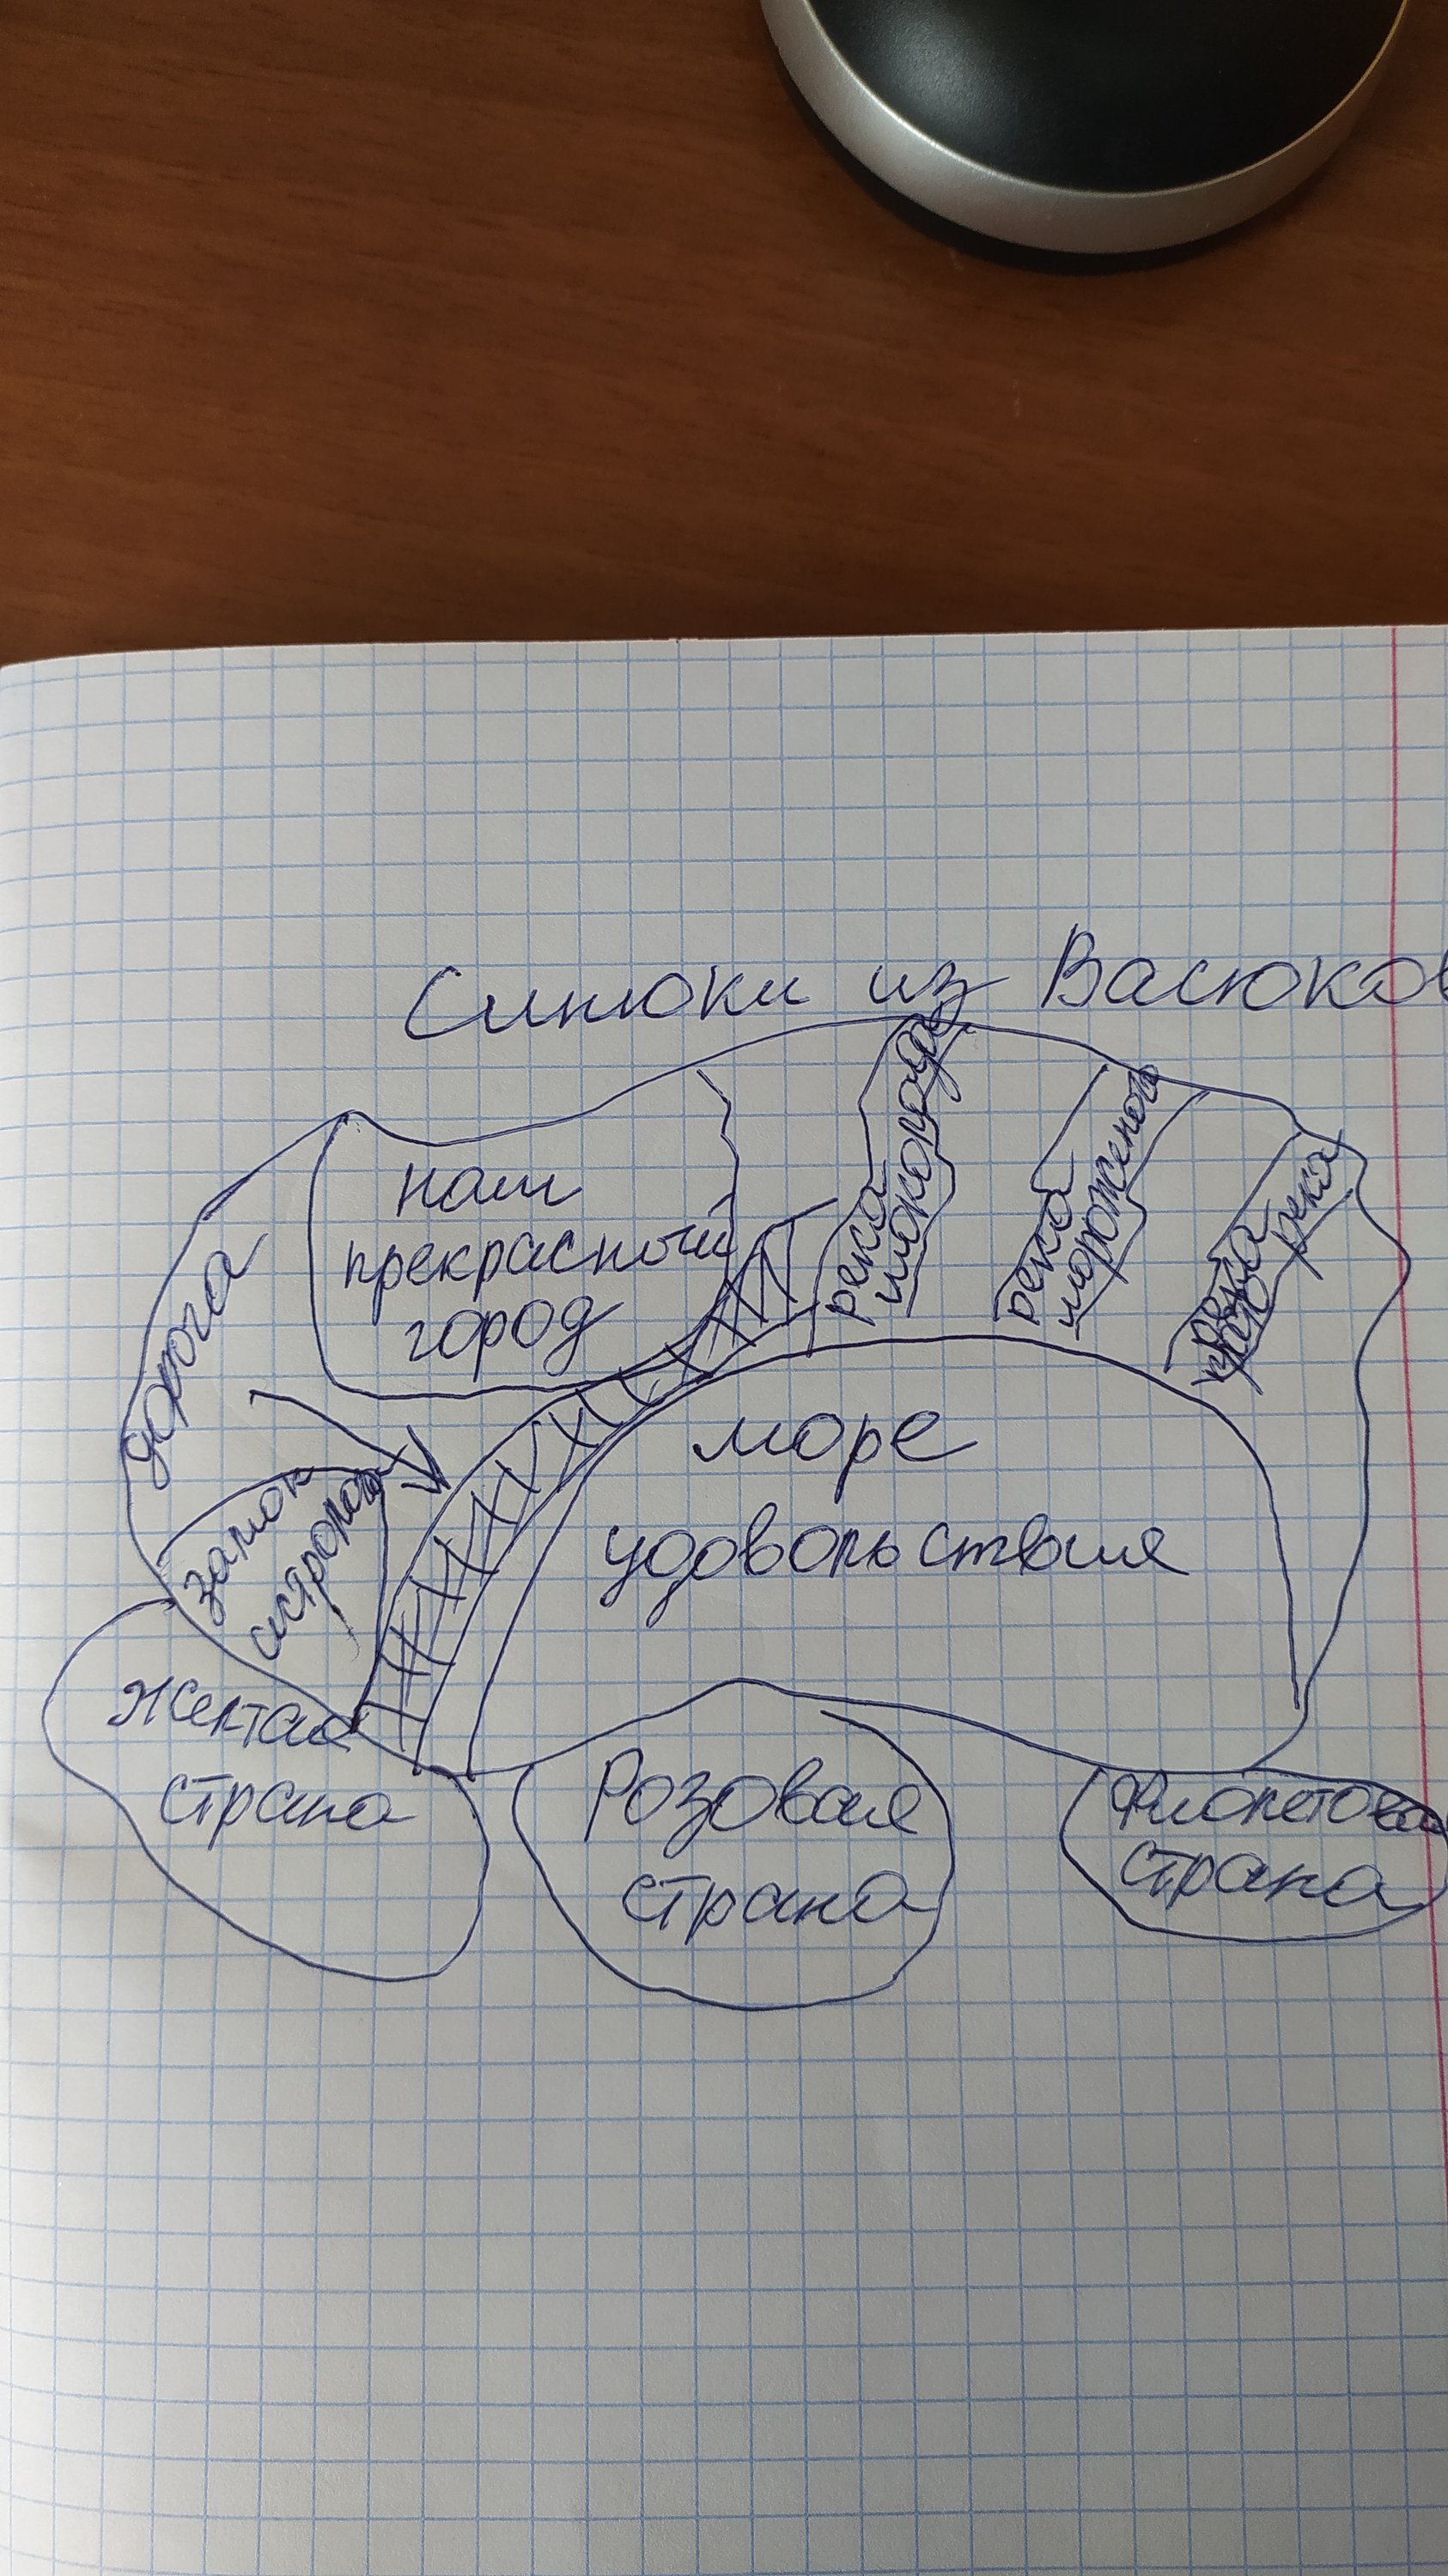 Синюки из Васюков
наш
прекрасный
город
река
шоколада
река
мороженого
река
дорога
море
удовольствия
замок
Желтая
страна
Розовая
страна
Фиолетовая
страна